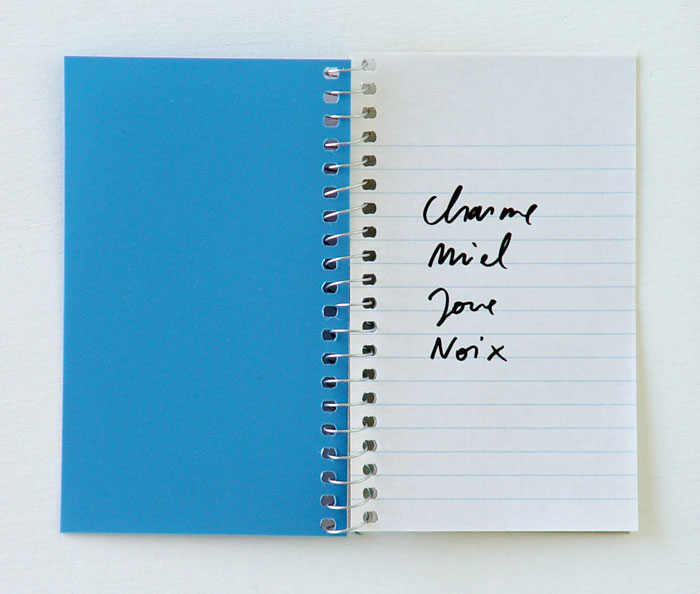 Charme
Miel
Zone
Noix